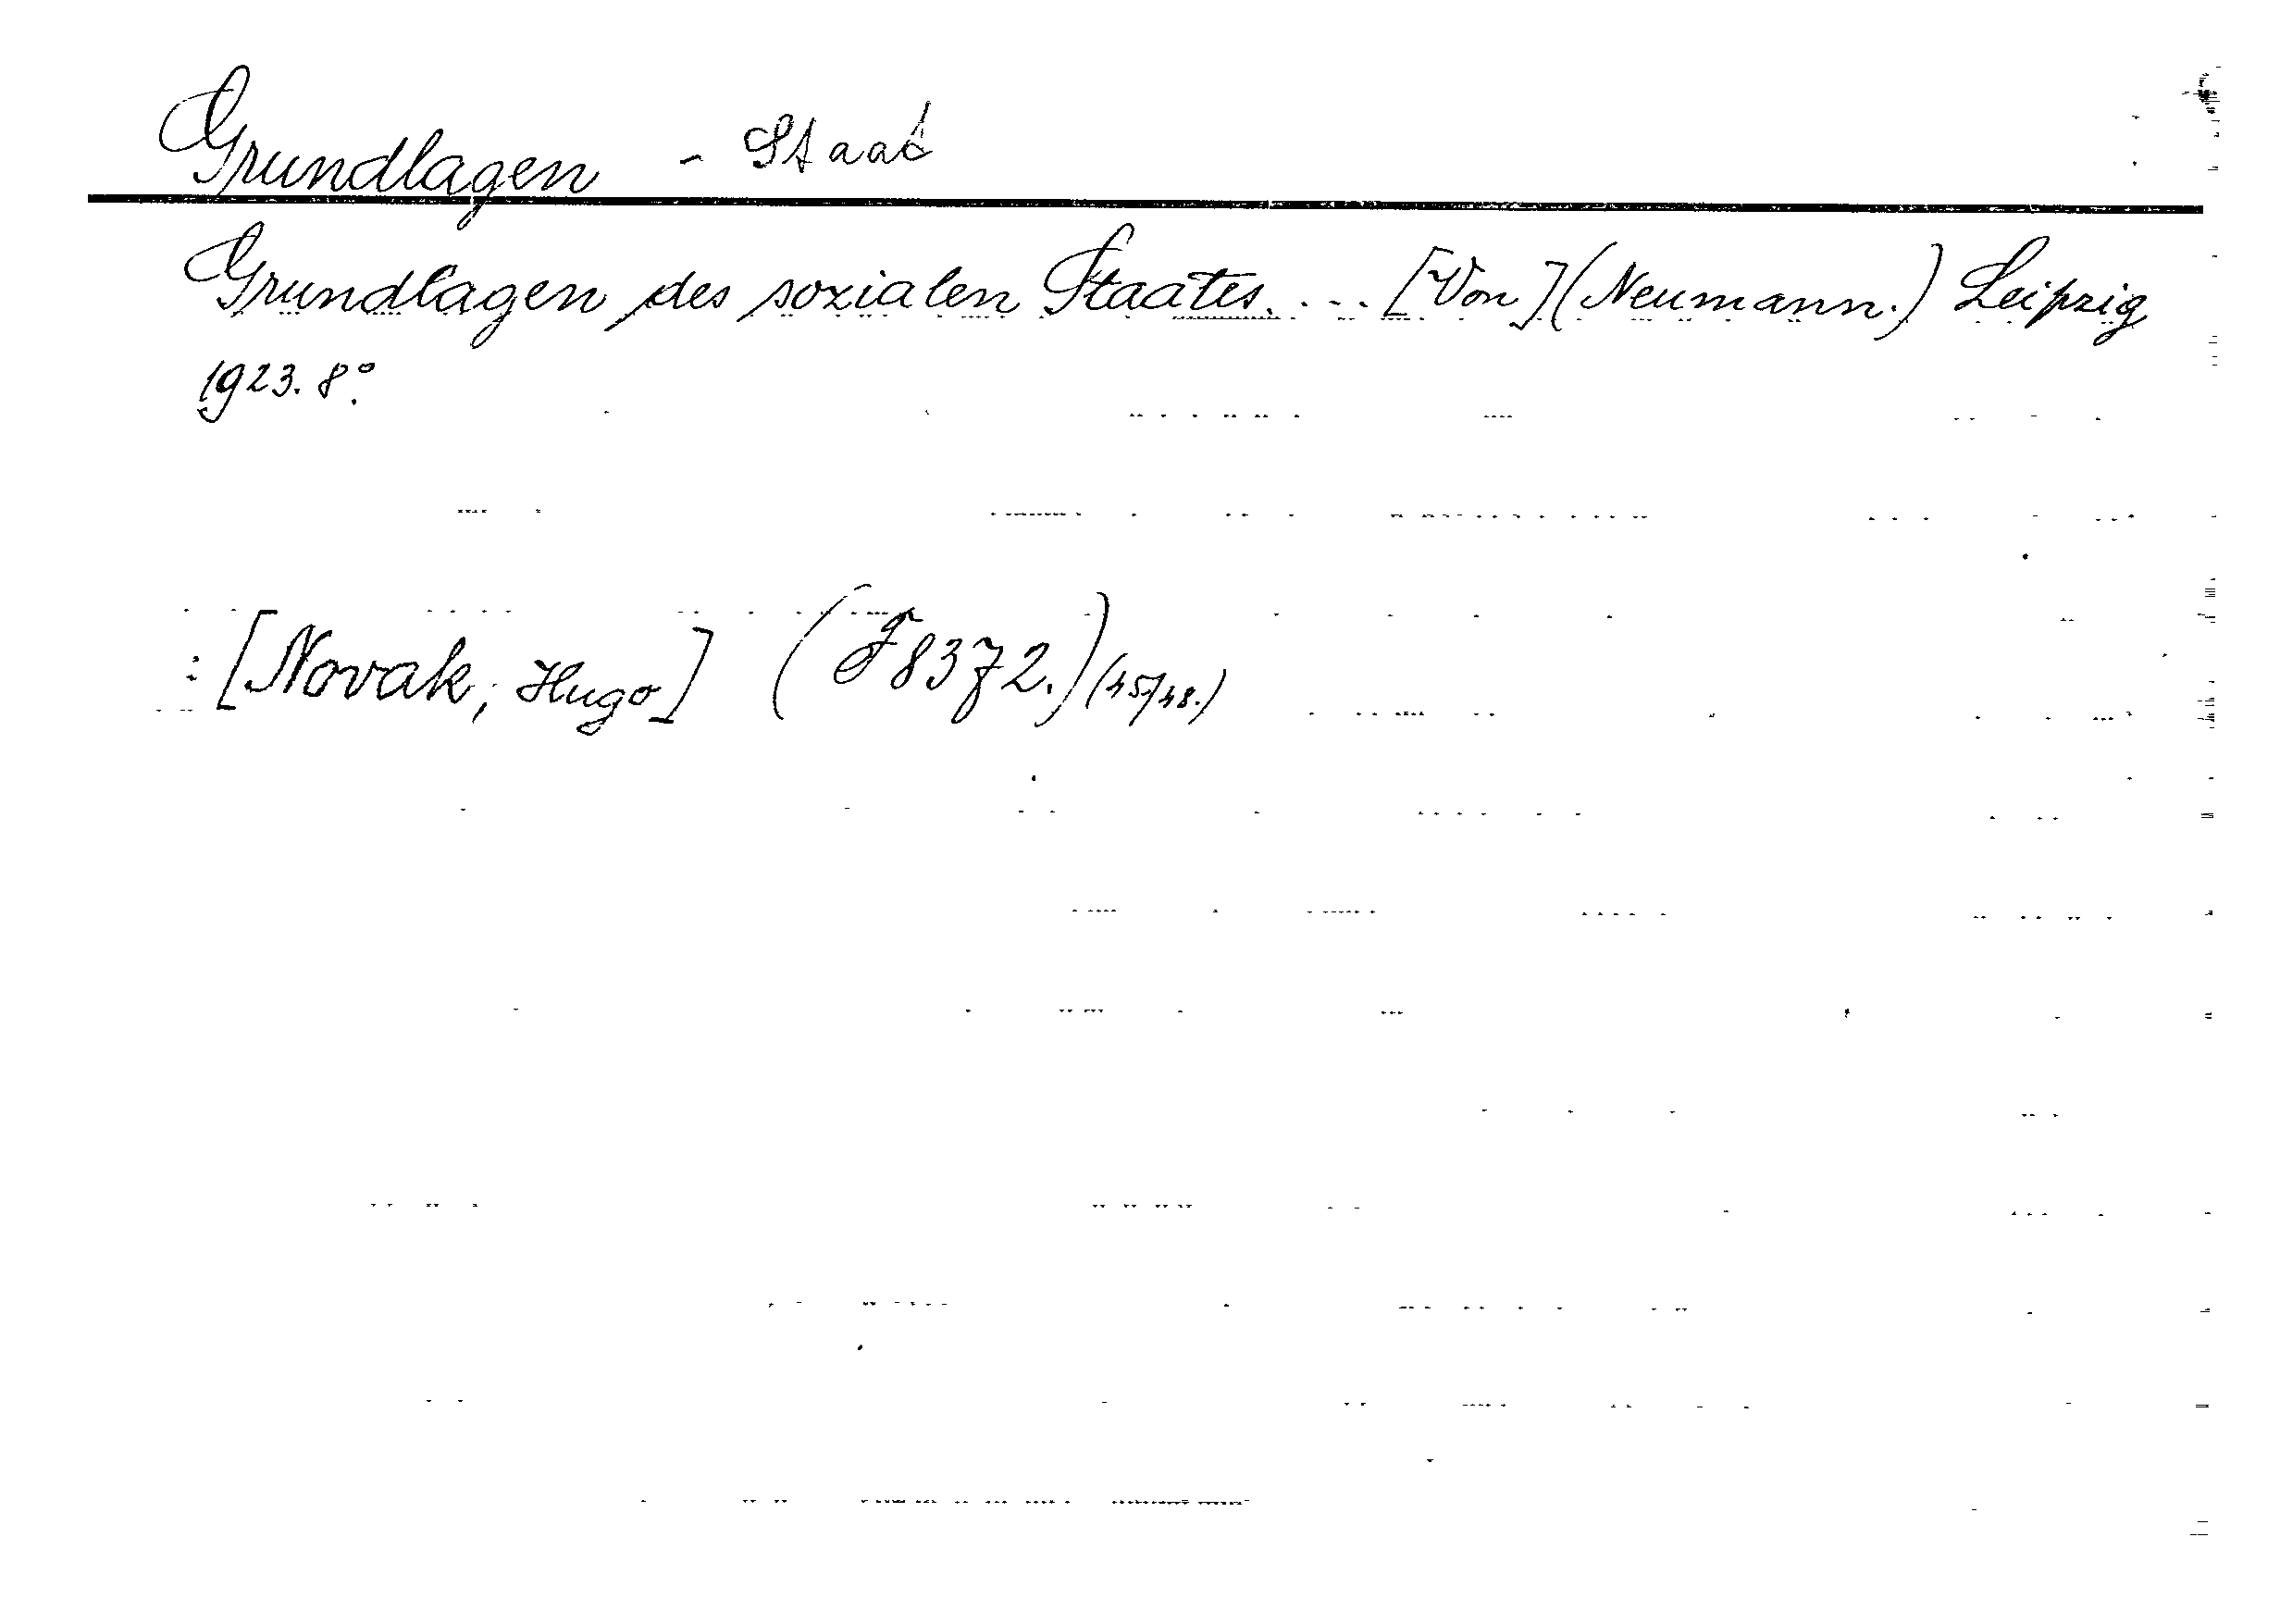 Grundlagen - Staat
Grundlagen des sozialen Staates. ... [Von] (Neumann.) Leipzig
1923. 8°.
: [Novak, Hugo] (F8372.) (45/48.)